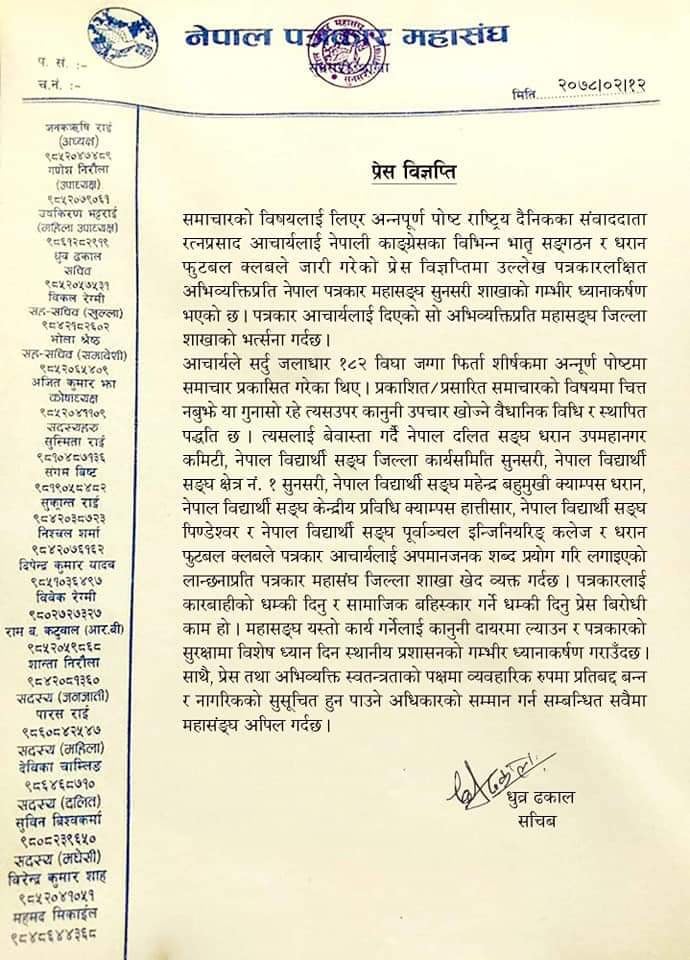 नेपाल पत्रकार महासंघ
प. सं. :-
च.नं. :-
मिति..........२०७८।०२।१२
जनकऋषि राई
(अध्यक्ष)
९८५२०४७४८९
गणेश निरौला
(उपाध्यक्ष)
९८५२०७९०६१
उषकिरण भट्टराई
(महिला उपाध्यक्ष)
९८६१२८२९१९
धुव्र ढकाल
सचिव
९८५२०५७५३१
विकल रेग्मी
सह-सचिव (खुल्ला)
९८४२१८२६०२
भोला श्रेष्ठ
सह-सचिव (समावेशी)
९८५२०६५४०९
अजित कुमार झा
कोषाध्यक्ष
९८५२०४११०९
सदस्यहरु
सुस्मिता राई
९८१०४८७१३६
संगम बिष्ट
९८१९०५८४८२
सुकान्त राई
९८४२०३८७२३
निश्चल शर्मा
९८४२०७६१६२
दिपेन्द्र कुमार यादब
९८५१०३६४९७
विवेक रेग्मी
९८०२७२७३२७
राम ब. कटुवाल (आर.बी)
९८५२०५९८६८
शान्ता निरौला
९८४२०८१३६०
सदस्य (जनजाती)
पारस राई
९८६०८४२५४७
सदस्य (महिला)
देविका चाम्लिङ
९८६४६८७१०
सदस्य (दलित)
सुविन बिश्वकर्मा
९८०८२३९६५०
सदस्य (मधेसी)
विरेन्द्र कुमार शाह
९८५२०४१०५१
महमद मिकाईल
९८४८६४४३६८
प्रेस विज्ञप्ति
समाचारको विषयलाई लिएर अन्नपूर्ण पोष्ट राष्ट्रिय दैनिकका संवाददाता
रत्नप्रसाद आचार्यलाई नेपाली काङ्ग्रेसका विभिन्न भातृ सङ्गठन र धरान
फुटबल क्लबले जारी गरेको प्रेस विज्ञप्तिमा उल्लेख पत्रकारलक्षित
अभिव्यक्तिप्रति नेपाल पत्रकार महासङ्घ सुनसरी शाखाको गम्भीर ध्यानाकर्षण
भएको छ । पत्रकार आचार्यलाई दिएको सो अभिव्यक्तिप्रति महासङ्घ जिल्ला
शाखाको भर्त्सना गर्दछ ।
आचार्यले सर्दु जलाधार १८२ विघा जग्गा फिर्ता शीर्षकमा अन्नूर्ण पोष्टमा
समाचार प्रकासित गरेका थिए । प्रकाशित/प्रसारित समाचारको विषयमा चित्त
नबुझे या गुनासो रहे त्यसउपर कानुनी उपचार खोज्ने वैधानिक विधि र स्थापित
पद्धति छ । त्यसलाई बेवास्ता गर्दै नेपाल दलित सङ्घ धरान उपमहानगर
कमिटी, नेपाल विद्यार्थी सङ्घ जिल्ला कार्यसमिति सुनसरी, नेपाल विद्यार्थी
सङ्घ क्षेत्र नं. १ सुनसरी, नेपाल विद्यार्थी सङ्घ महेन्द्र बहुमुखी क्याम्पस धरान,
नेपाल विद्यार्थी सङ्घ केन्द्रीय प्रविधि क्याम्पस हात्तीसार, नेपाल विद्यार्थी सङ्घ
पिण्डेश्वर र नेपाल विद्यार्थी सङ्घ पूर्वाञ्चल इन्जिनियरिङ्ग कलेज र धरान
फुटबल क्लबले पत्रकार आचार्यलाई अपमानजनक शब्द प्रयोग गरि लगाइएको
लान्छनाप्रति पत्रकार महासंघ जिल्ला शाखा खेद व्यक्त गर्दछ । पत्रकारलाई
कारबाहीको धम्की दिनु र सामाजिक बहिस्कार गर्ने धम्की दिनु प्रेस बिरोधी
काम हो । महासङ्घ यस्तो कार्य गर्नेलाई कानुनी दायरमा ल्याउन र पत्रकारको
सुरक्षामा विशेष ध्यान दिन स्थानीय प्रशासनको गम्भीर ध्यानाकर्षण गराउँदछ ।
साथै, प्रेस तथा अभिव्यक्ति स्वतन्त्रताको पक्षमा व्यवहारिक रुपमा प्रतिबद्द बन्न
र नागरिकको सुसूचित हुन पाउने अधिकारको सम्मान गर्न सम्बन्धित सवैमा
महासंङ्घ अपिल गर्दछ ।
धुव्र ढकाल
सचिब